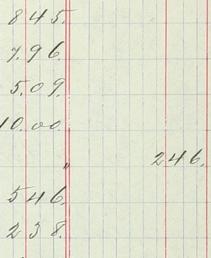 845.
7.96.
5.09.
10.00.
"
246.
546.
238.